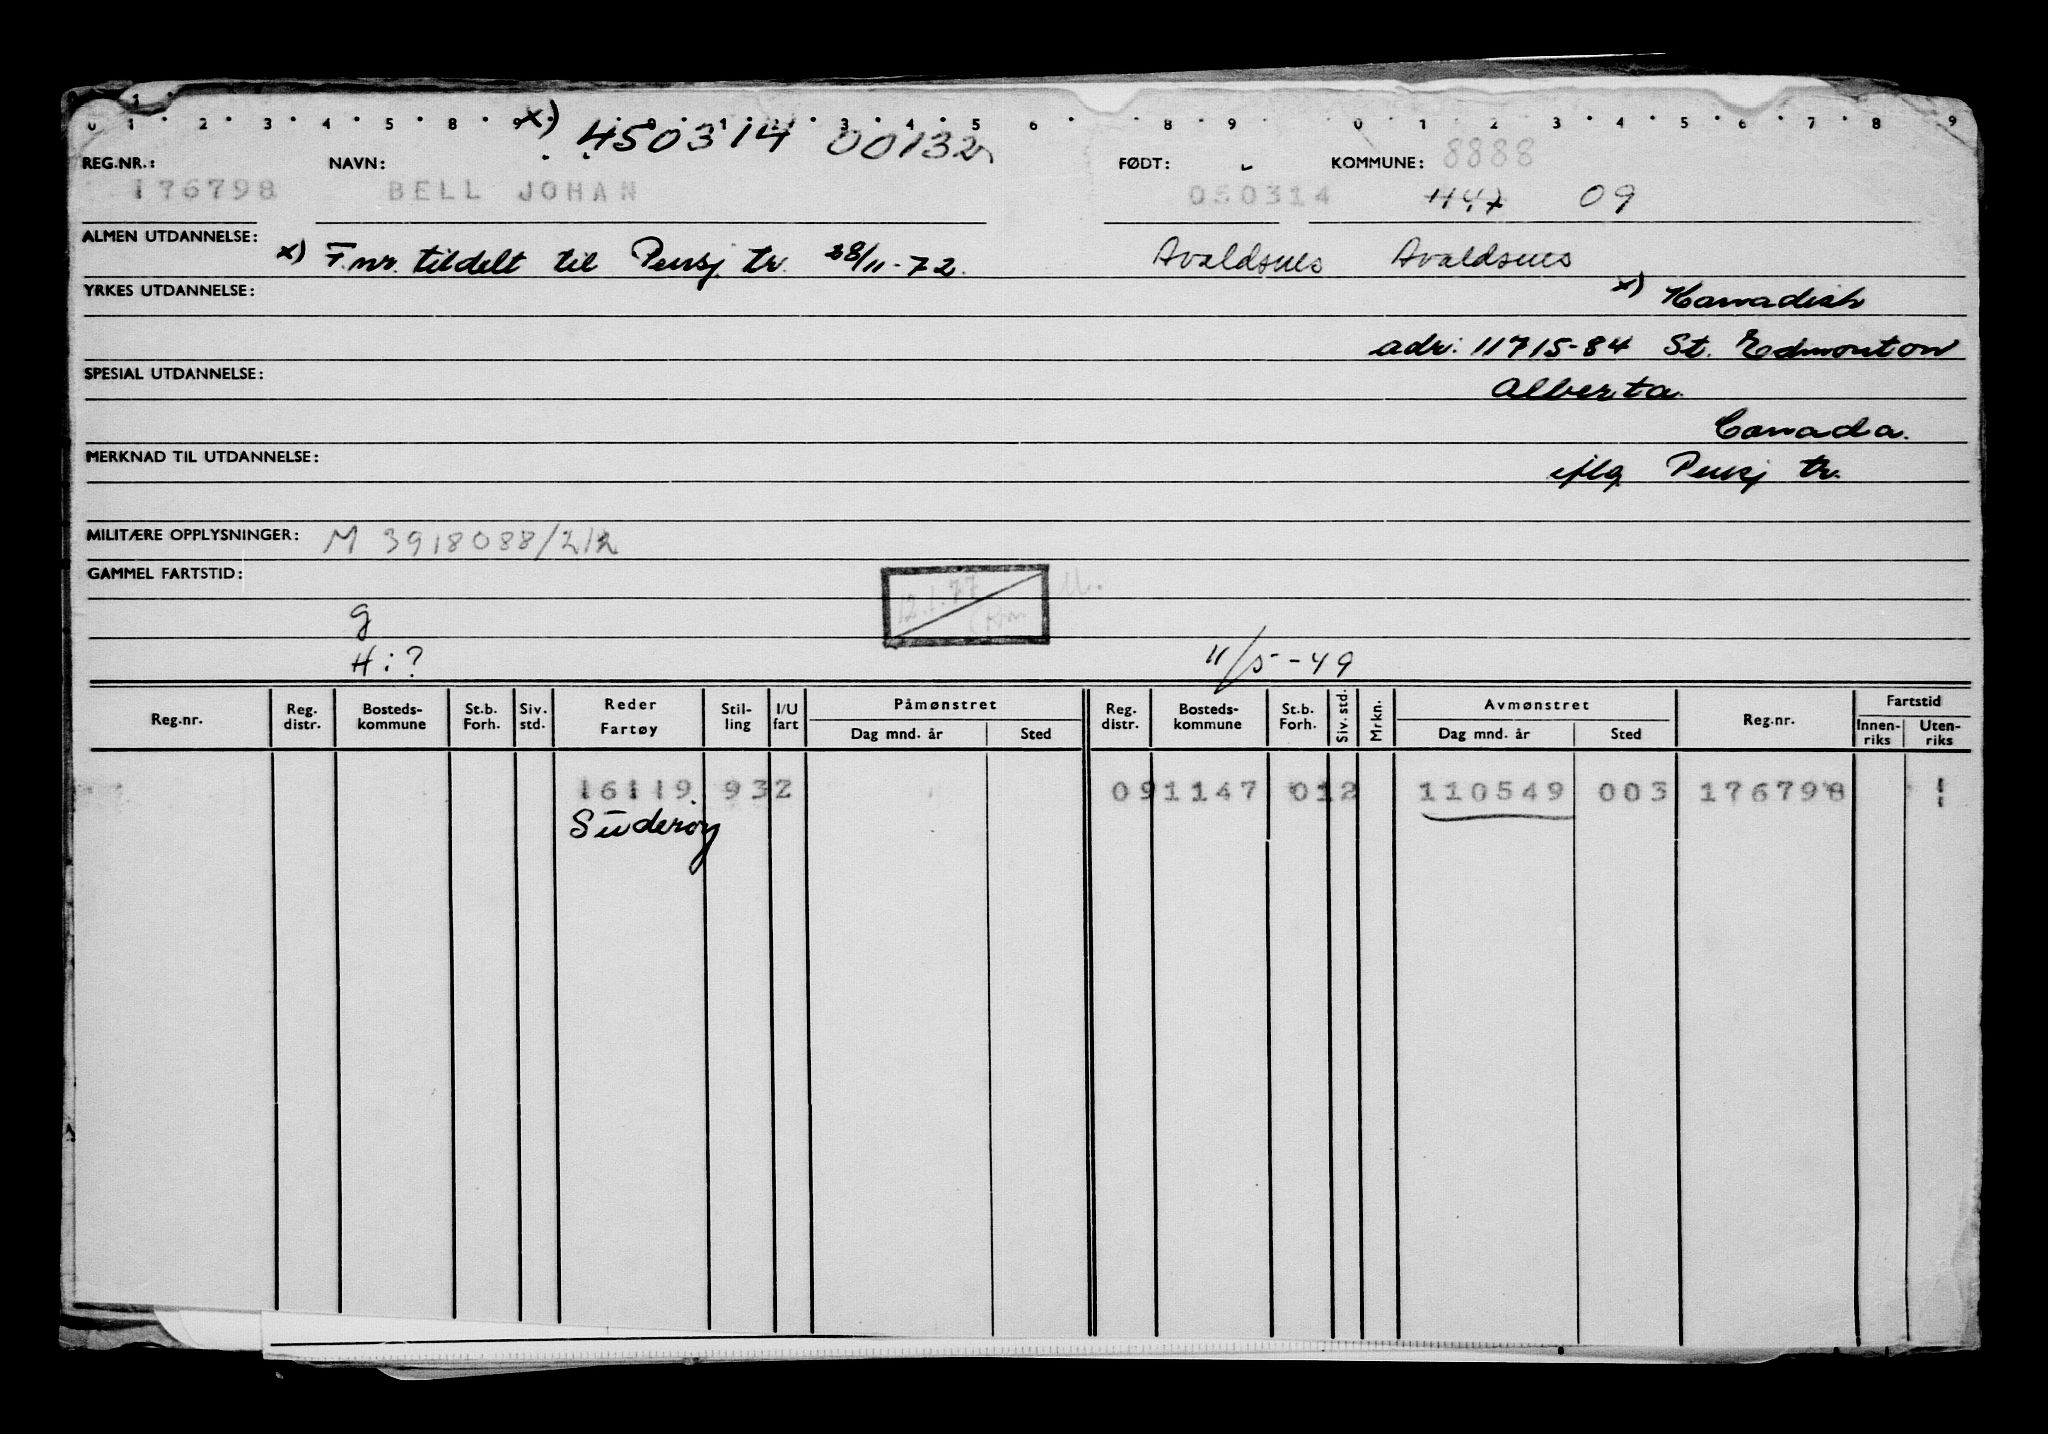 0 1 2 3 4 5 8 9 0 1 3 4 5 6 8 9 0 1 2 3 4 5 6 7 8 9
x) 450314 00132
REG.NR.: NAVN: FØDT: KOMMUNE: 8888
176798 BELL JOHAN 050314 1147 09
ALMEN UTDANNELSE: x) F.nr. tildelt til Pensj tr. 28/11-72. Avaldsnes Avaldsnes
YRKES UTDANNELSE: x) Kanadisk
adr: 11715-84 St. Edmonton
SPESIAL UTDANNELSE: Alberta.
Canada.
MERKNAD TIL UTDANNELSE: iflg Pensj tr.
MILITÆRE OPPLYSNINGER: M 3918088/212
GAMMEL FARTSTID: 12.1.77
g
H i ? 11/5-49
Reg.nr. Reg. distr. Bosteds-kommune St.b. Forh. Siv. std. Reder Fartøy Stil-ling I/U fart Påmønstret Dag mnd. år Sted Reg. distr. Bosteds-kommune St.b. Forh. Siv. std. Mrkn. Avmønstret Dag mnd. år Sted Reg.nr. Fartstid Innen-riks Uten-riks
16119 932 091147 012 110549 003 176798
Suderøy